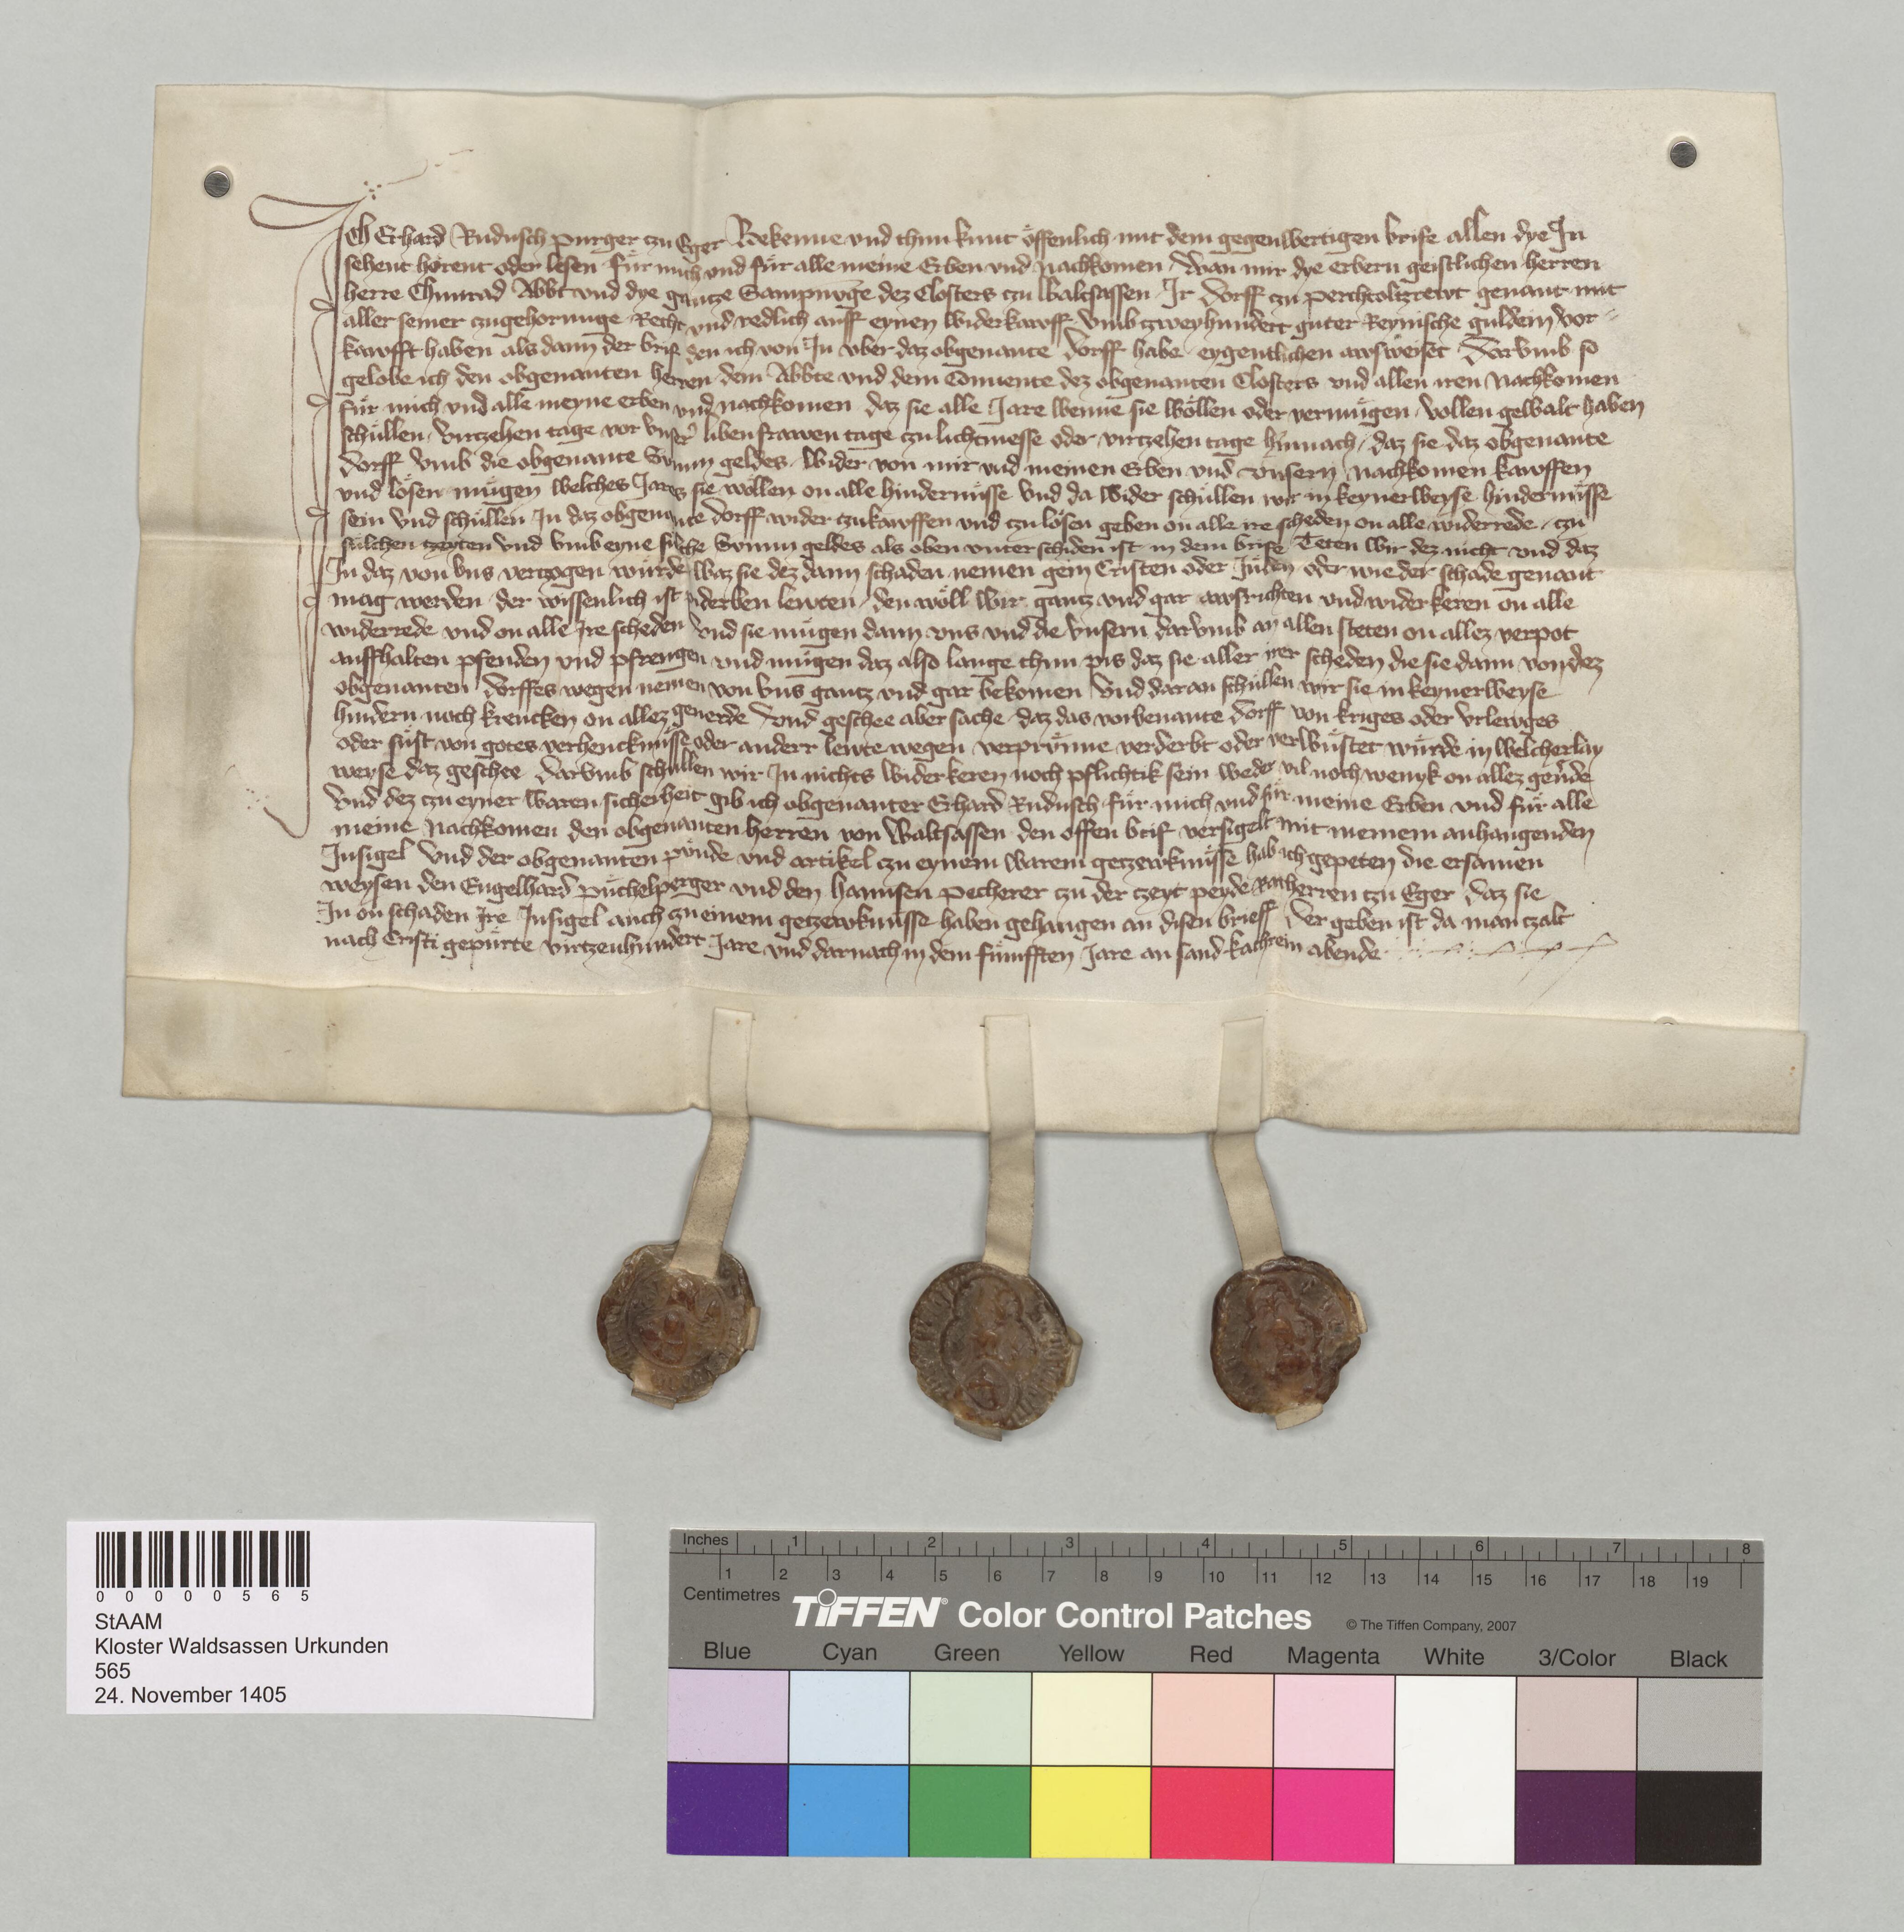 Ich Erhard Rudusch purger czu Eger Bekenne vnd thun kunt öffenlich mit dem gegenwertigen brife allen dye Jn
sehent hörent oder lesen für mich vnd für alle meine Erben vnd Nachkomen Wan mir dye erbern geistlichen herren
herre Chunrad Abbt vnd dye gantze Sampnvge dez Closters czu Waltsassen Jr dorff czu perchtoltzrewt genant mit
aller seiner czugehorunge Recht vnd redlich auff eynen widerkawff vmb czweyhundert guter Reynische guldein vor-
kawfft haben als dann der brif den ich von Jn vber daz obgenante dorff habe eygentlichen awsweiset Dorvmb so
gelobe ich den obgenanten herren dem Abbte vnd dem Conuente dez obgenanten Closters vnd allen iren Nachkomen
für mich vnd alle meyne erben vnd nachkomen daz sie alle Jare wenne sie wöllen oder vermügen vollen gewalt haben
schüllen virczehen tage vor vnser liben frawen tage czu lichtmesse oder virczehen tage hinnach daz sie daz obgenante
dorff vmb die obgenante Summ geldes wider von mir vnd meinen Erben vnd vnsern Nachkomen kawffen
vnd lösen mügen welches Jares sie wöllen on alle hindernüsse vnd da wider schüllen wir in keynerweyse hindernüsse
sein vnd schüllen Jn daz obgenante dorff wider czukawffen vnd czu lösen geben on alle ire scheden on alle widerrede czu
sülchen czeyten vnd vmb eyne sülche Summ geldes als oben vnterschiden ist in dem brife Teten wir dez nicht vnd daz
Jn daz von vns verczogen würde waz sie dez dann schaden nemen gein Cristen oder Juden oder wie der schade genant
mag werden der wissenlich ist piderben lewten den wöll wir gantz vnd gar awsrichten vnd widerkeren on alle
widerrede vnd on alle Jre scheden Vnd sie mügen dann vns vnd die vnsern darvmb an allen steten on allez verpot
auffhalten pfenden vnd pfrengen vnd mügen daz also lange thun pis daz sie aller irer scheden die sie dann von dez
obgenanten dorffes wegen nemen von vns gantz vnd gar bekomen Vnd daran schüllen wir sie in keynerweyse
hindern noch krencken on allez geuerde Vnd geschee aber sache daz das vorbenante dorff von kriges oder vrlewges
oder süst von gotes verhencknüsse oder anderr lewte wegen verprünne verderbt oder verwüstet würde in welcherlay
weyse daz geschee darvmb schüllen wir Jn nichts widerkeren noch pflichtik sein weder vil noch wenyk on allez geuerde
Vnd dez czu eyner waren sicherheit gib ich obgenanter Erhard Rudusch für mich vnd für meine Erben vnd für alle
meine Nachkomen den obgenanten herren von Waltsassen den offen brif versigelt mit meinem anhangenden
Jnsigel Vnd der obgenanten pünde vnd artikel czu eynem warem getzewknüsse hab ich gepeten die ersamen
weysen den Engelhard püchelperger vnd den hannsen pecherer czu der czeyt peyde Ratherren czu Eger daz sie
Jn on schaden Jre Jnsigel auch zu einem getzewknüsse haben gehangen an disen brieff Der geben ist da man czalt
nach Cristi gepürte virtzenhundert Jare vnd darnach in dem fümfften Jare an sand kathrein abende
0 0 0 0 0 5 6 5
StAAM
Kloster Waldsassen Urkunden
565
24. November 1405
Inches 1 2 3 4 5 6 7 8
1 2 3 4 5 6 7 8 9 10 11 12 13 14 15 16 17 18 19
Centimetres
TIFFEN® Color Control Patches © The Tiffen Company, 2007
Blue Cyan Green Yellow Red Magenta White 3/Color Black